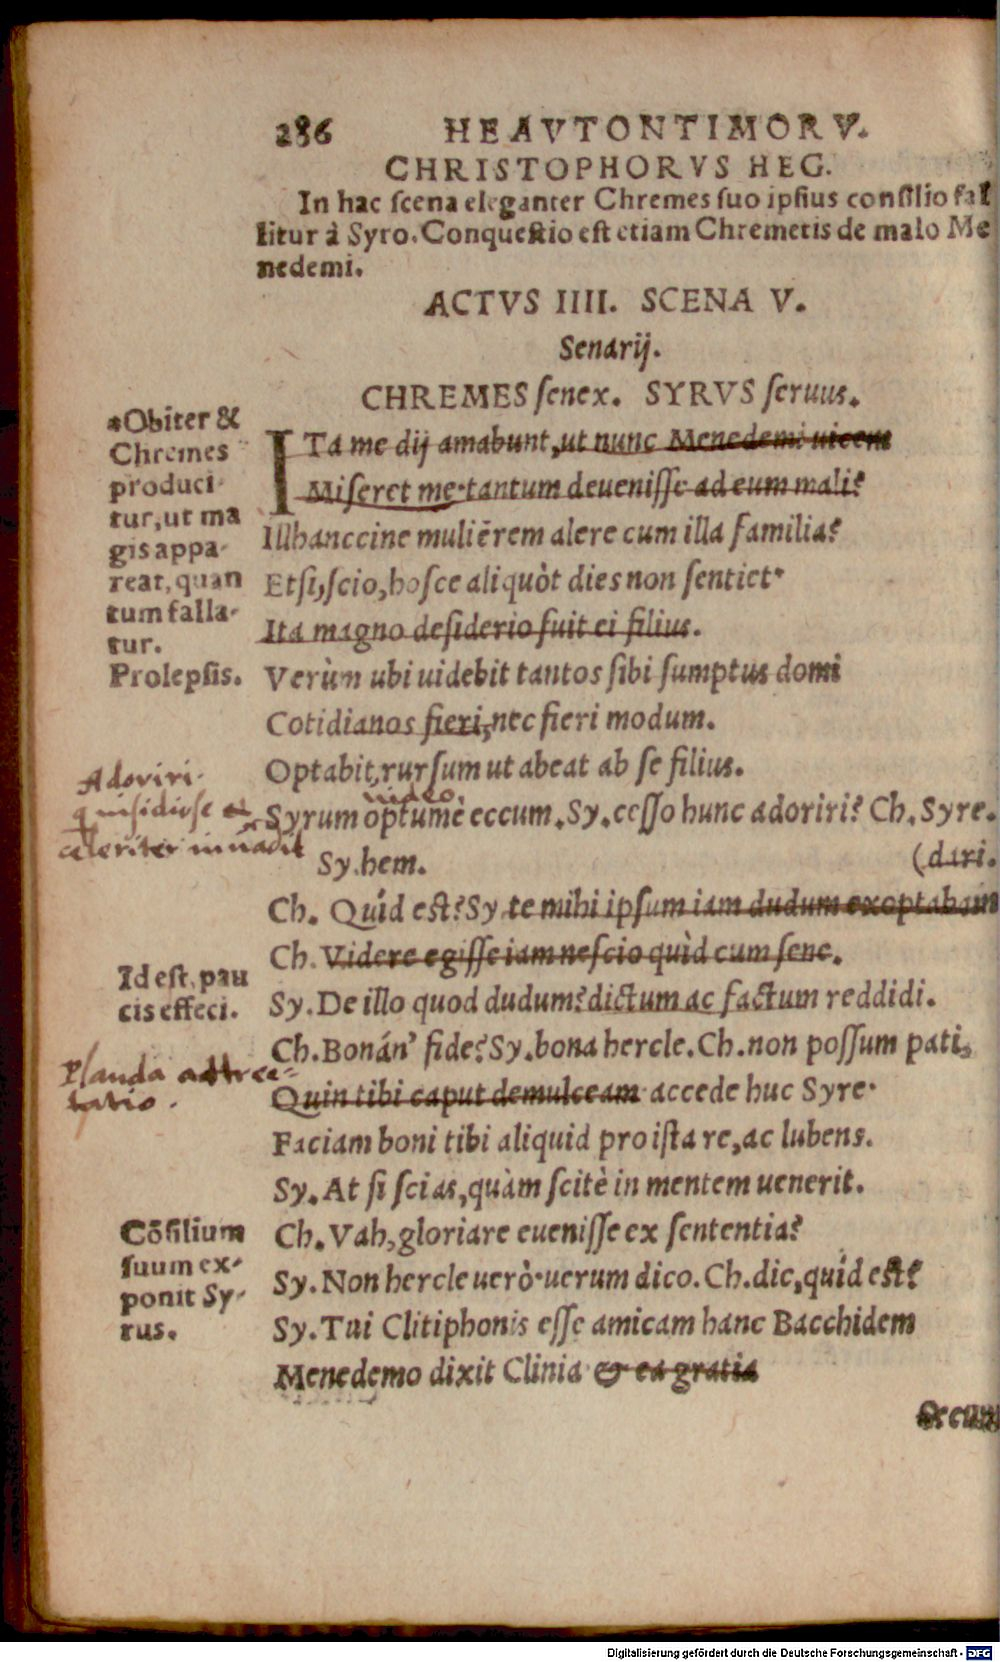 286 HEAVTONTIMORV.
CHRISTOPHORVS HEG.
In hac scena eleganter Chremes suo ipsius consilio fal
litur à Syro. Conquestio est etiam Chremetis de malo Me
nedemi.
ACTVS IIII. SCENA V.
Senarij.
CHREMES senex. SYRVS seruus.
*Obiter &
Chremes
produci-
tur, ut ma
gis appa-
reat, quan
tum falla-
tur.
Prolepsis.
ITa me dij amabunt, ut nunc Menedemi uicem
Miseret me. tantum deuenisse ad eum mali?
Illhanccine muliērem alere cum illa familia?
Etsi, scio, hosce aliquòt dies non sentiet.
Ita magno desiderio fuit ei filius.
Verùm ubi uidebit tantos sibi sumptus domi
Cotidianos fieri, nec fieri modum.
Optabit, rursum ut abeat ab se filius.
Adoriri.
insidiose et
celeriter inuadit
video.
Syrum optumè eccum. Sy. cesso hunc adoriri? Ch. Syre.
Sy. hem. (dari.
Ch. Quíd est? Sy te mihi ipsum iam dudum exoptabam
Ch. Videre egisse iam nescio quìd cum sene.
Id est, pau
cis effeci.
Sy. De illo quod dudum? dictum ac factum reddidi.
Ch. Bonán' fide? Sy. bona hercle. Ch. non possum pati,
Planda attrec-
tatio.
Quin tibi caput demulceam. accede huc Syre.
Faciam boni tibi aliquid pro ista re, ac lubens.
Sy. At si scias, quàm scitè in mentem uenerit.
Cōsilium
suum ex-
ponit Sy-
rus.
Ch. Vah, gloriare euenisse ex sententia?
Sy. Non hercle uerò. uerum dico. Ch. dic, quíd est?
Sy. Tui Clitiphonis esse amicam hanc Bacchidem
Menedemo dixit Clinia. & ea gratia
Secum
Digitalisierung gefördert durch die Deutsche Forschungsgemeinschaft - DFG